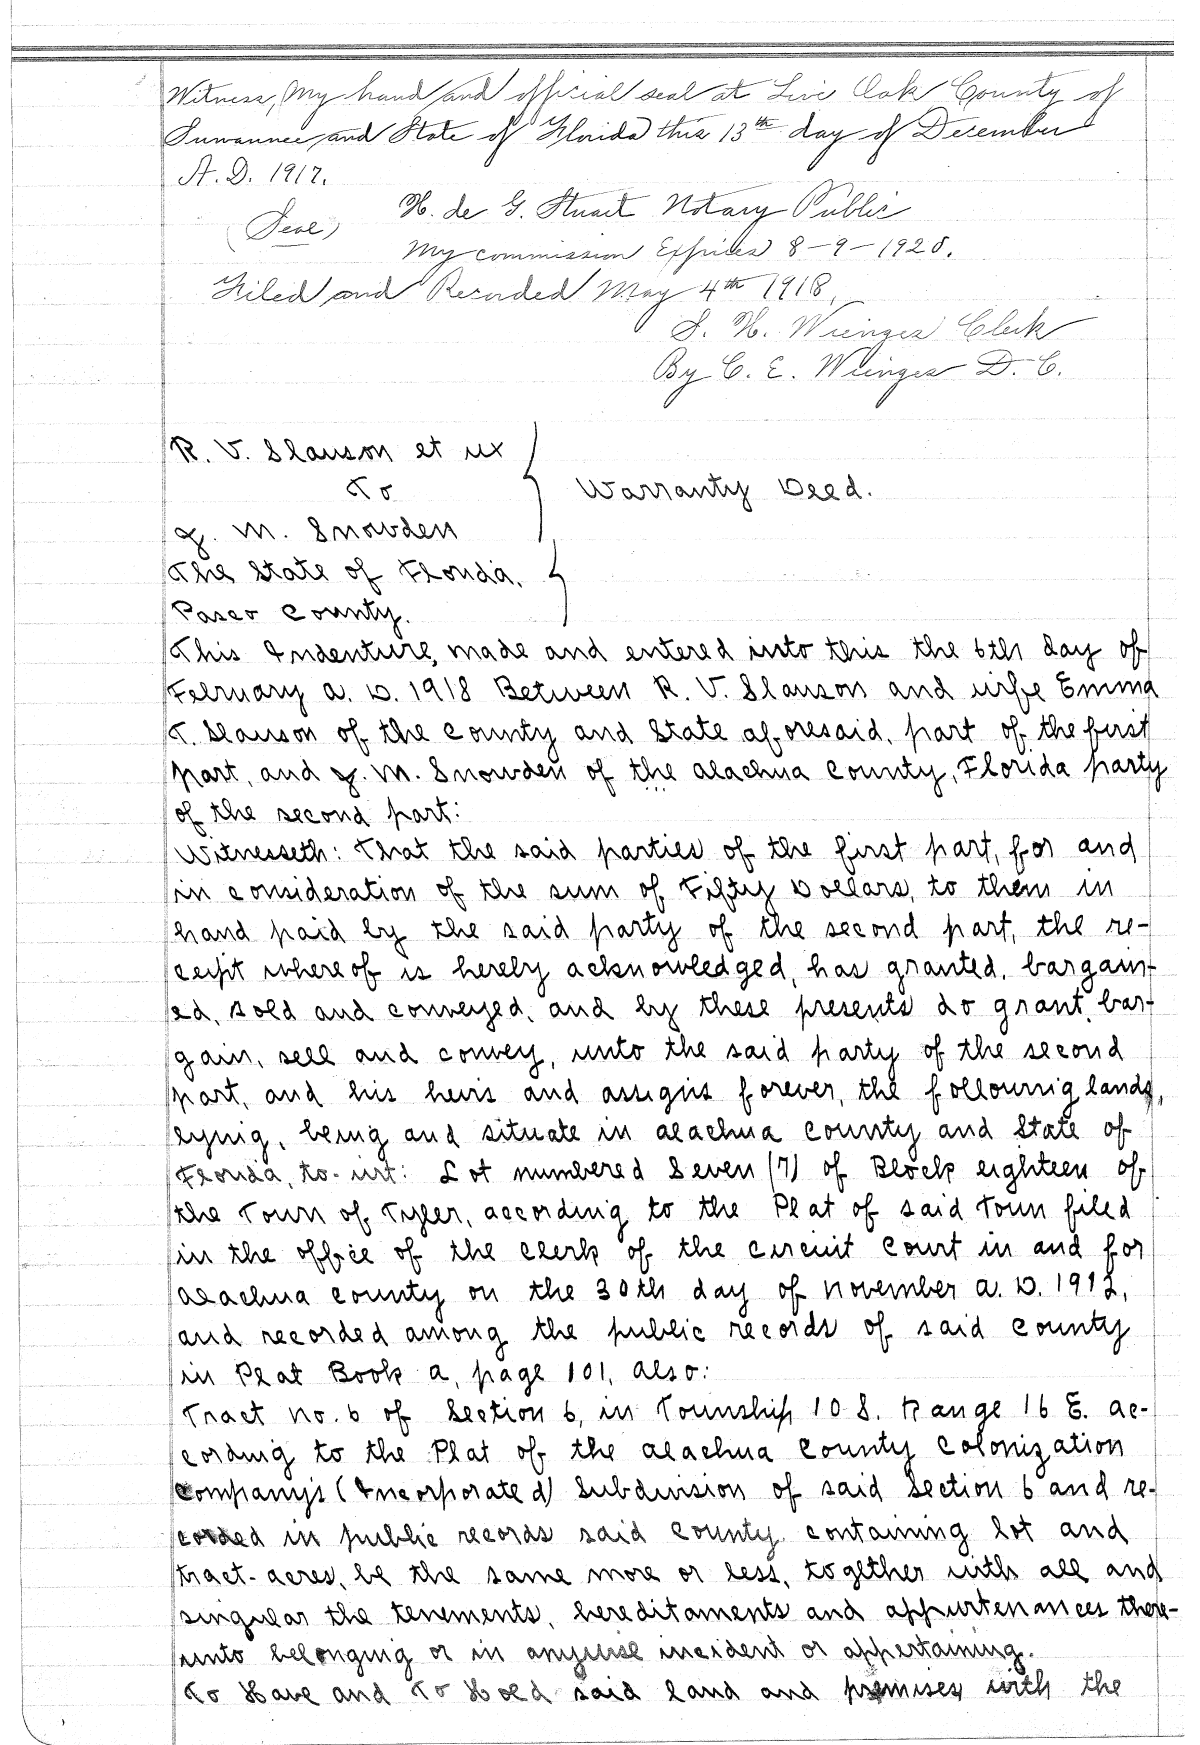 Witness, My hand and official seal at Live Oak County of
Suwannee and State of Florida this 13th day of December
A. D. 1917.
H. de G. Stuart Notary Public
(Seal)
My commission Expires 8-9-1920.
Filed and Recorded May 4th 1918,
S. H. Wienges Clerk
By C. E. Wienges D. C.
R. V. Slauson et ux
To
Warranty Deed.
J. M. Snowden
The State of Florida,
Pasco County.
This Indenture, made and entered into this the 6th day of
February A. D. 1918 Between R. V. Slauson and wife Emma
T. Slauson of the County and State aforesaid, part of the first
part, and J. M. Snowden of the Alachua County, Florida party
of the second part:
Witnesseth: That the said parties of the first part, for and
in consideration of the sum of Fifty Dollars, to them in
hand paid by the said party of the second part, the re-
ceipt whereof is hereby acknowledged, has granted, bargain-
ed, sold and conveyed, and by these presents do grant, bar-
gain, sell and convey, unto the said party of the second
part, and his heirs and assigns forever, the following lands,
lying, being and situate in Alachua County and State of
Florida, to-wit: Lot numbered Seven (7) of Block eighteen of
the Town of Tyler, according to the Plat of said Town filed
in the office of the Clerk of the Circuit Court in and for
Alachua County on the 30th day of November A. D. 1912,
and recorded among the public records of said County
in Plat Book A, page 101, also:
Tract No. 6 of Section 6, in Township 10 S. Range 16 E. ac-
cording to the Plat of the Alachua County Colonization
Company's (Incorporated) Subdivision of said Section 6 and re-
corded in public records said County containing lot and
tract-acres, be the same more or less, together with all and
singular the tenements, hereditaments and appurtenances there-
unto belonging or in anywise incident or appertaining.
To Have and To Hold said land and premises with the